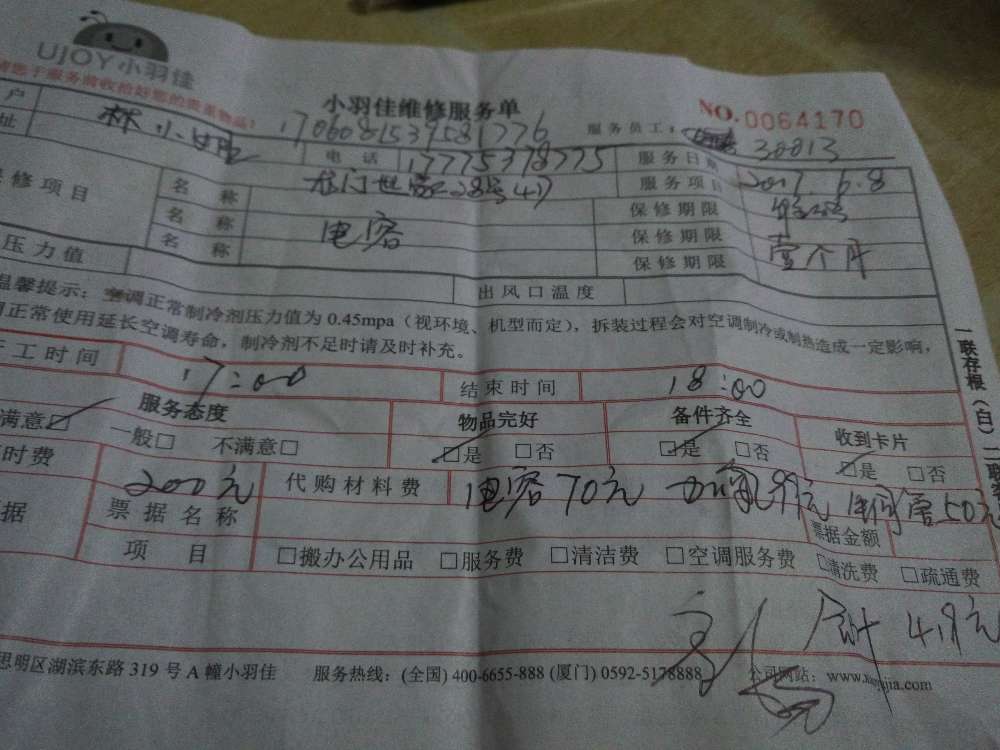 UJOY小羽佳
请您于服务前收拾好您的贵重物品!
小羽佳维修服务单
NO.0064170
户 林小姐 1706081539581776 服务员工: 30013
址 电话 17775378775 服务日期 2017.6.8
保修项目 名称 服务项目
名称 电容 保修期限
名称 保修期限 壹个月
保修期限
压力值 出风口温度
温馨提示:空调正常制冷剂压力值为0.45mpa(视环境、机型而定),拆装过程会对空调制冷或制热造成一定影响,
正常使用延长空调寿命,制冷剂不足时请及时补充。
工时间 17:00 结束时间 18:00
服务态度 物品完好 备件齐全 收到卡片
满意□ 一般□ 不满意□ □是 □否 □是 □否 □是 □否
时费 200元 代购材料费 电容70元 加氟99元 铜管50元
据 票据名称 票据金额
项目 □搬办公用品 □服务费 □清洁费 □空调服务费 □清洗费 □疏通费
合计 419元
思明区湖滨东路319号A幢小羽佳 服务热线:(全国) 400-6655-888 (厦门) 0592-5178888 公司网站:
一联存根(白)二联